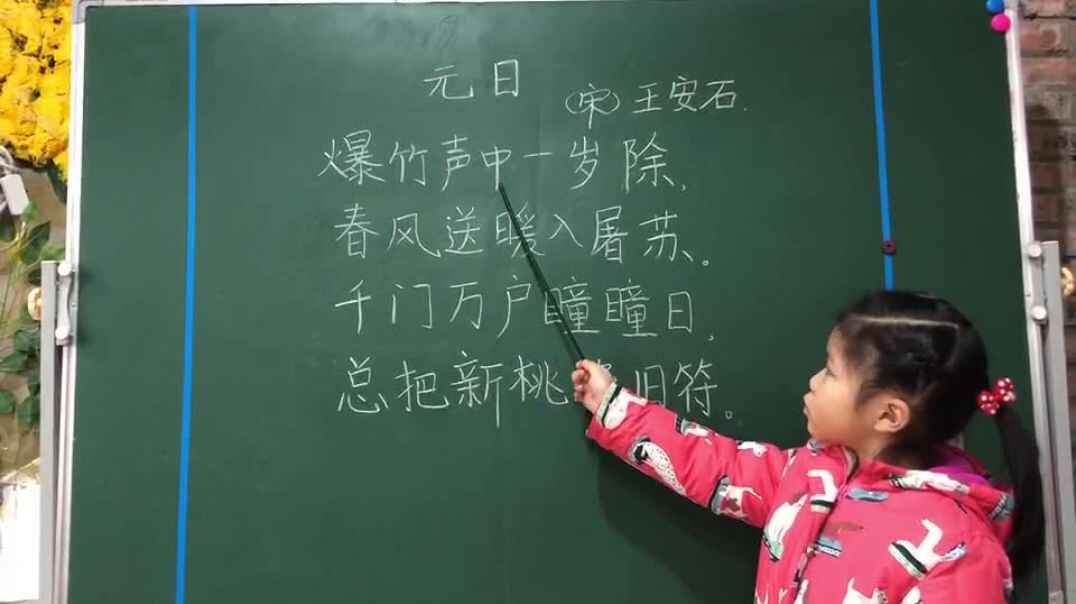 元日
(宋) 王安石.
爆竹声中一岁除,
春风送暖入屠苏。
千门万户瞳瞳日,
总把新桃 旧符。